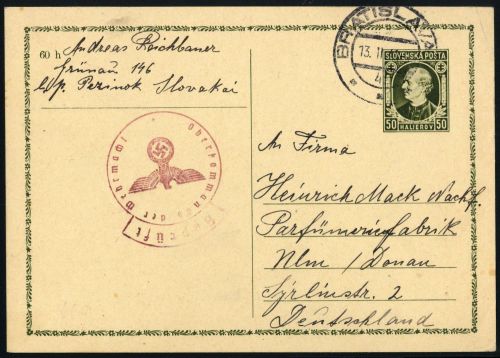 60 h
Andreas Reichbauer
Grünau 146
b/p. Pezinok Slovakai
BRATISLAVA
13. II
SLOVENSKÁ POŠTA
50 HALIEROV 50
Oberkommando der Wehrmacht
Geprüft
An Firma
Heinrich Mack Nachf.
Parfümerie fabrik
Ulm / Donau
Syrlinstr. 2
Deutschland